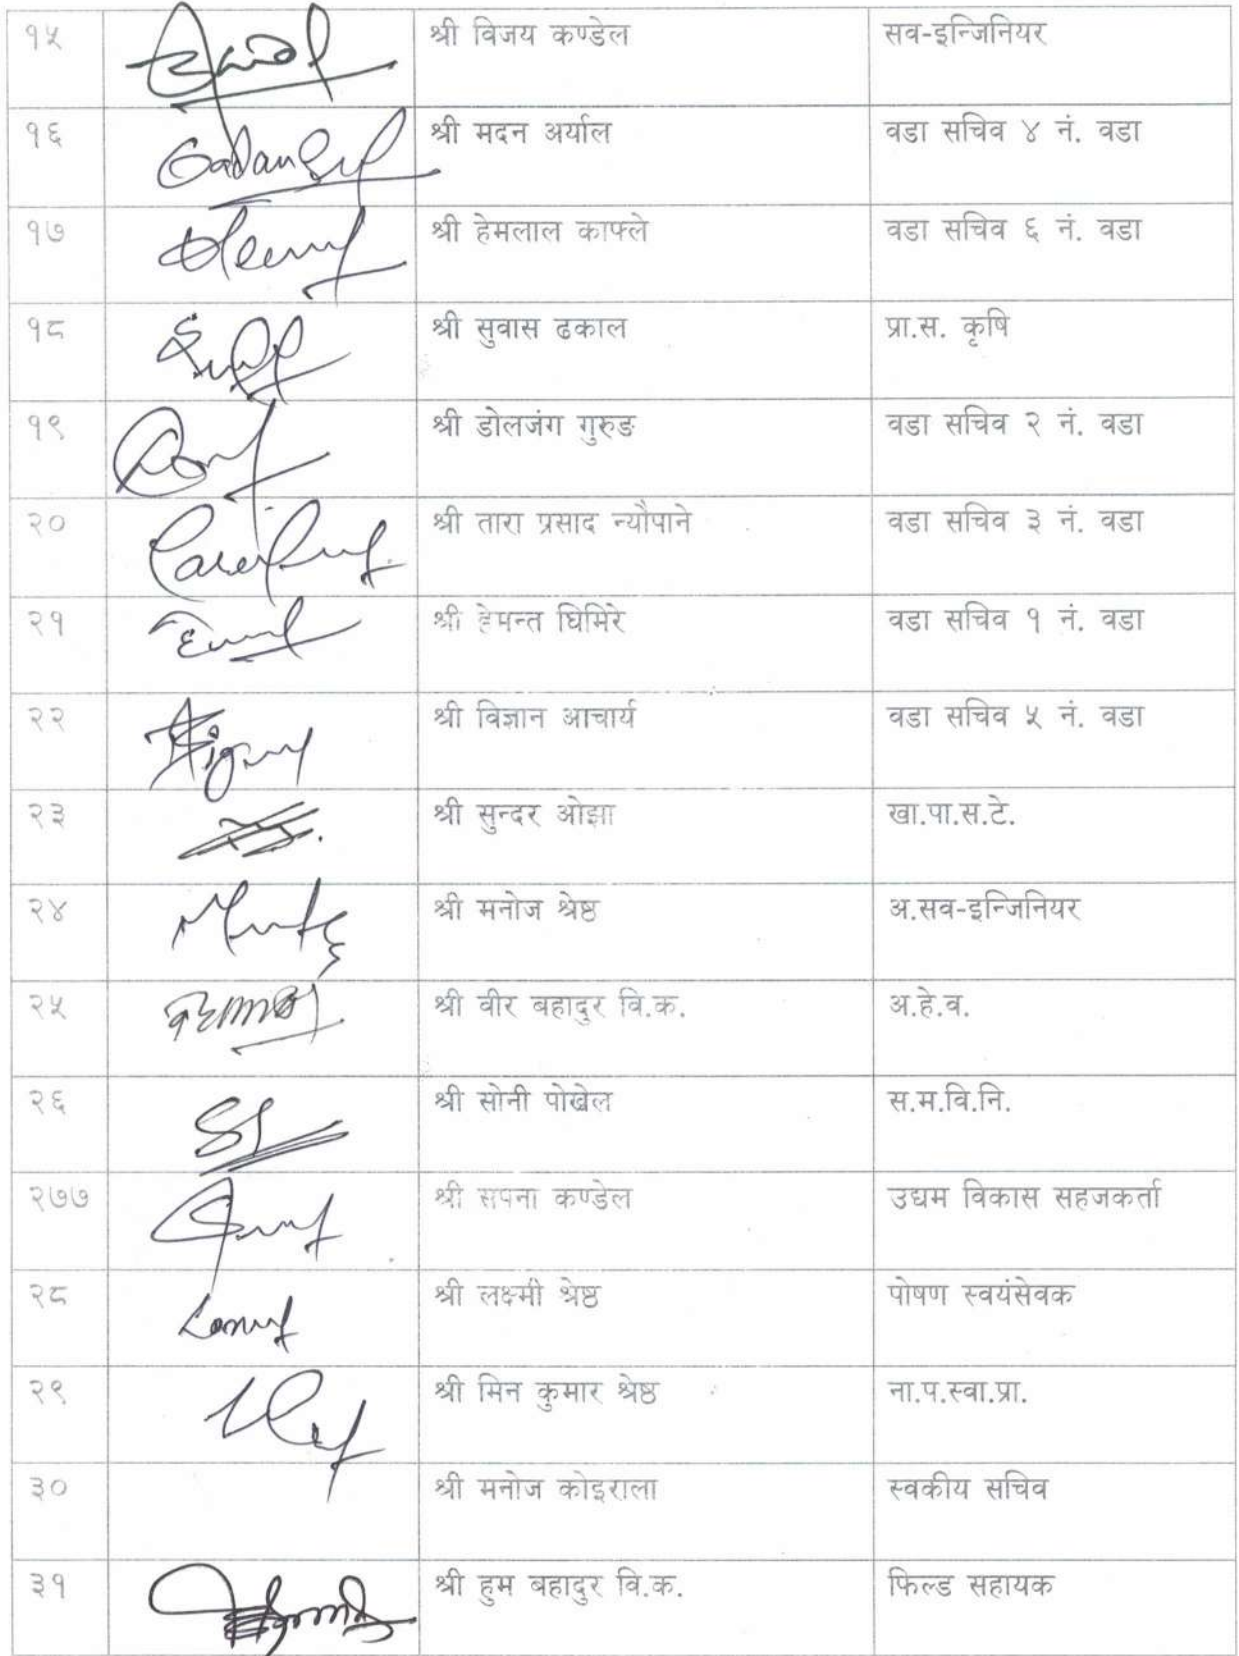 १५ श्री विजय कण्डेल सव-इन्जिनियर
१६ श्री मदन अर्याल वडा सचिव ४ नं. वडा
१७ श्री हेमलाल काफ्ले वडा सचिव ६ नं. वडा
१८ श्री सुवास ढकाल प्रा.स. कृषि
१९ श्री डोलजंग गुरुङ वडा सचिव २ नं. वडा
२० श्री तारा प्रसाद न्यौपाने वडा सचिव ३ नं. वडा
२१ श्री हेमन्त घिमिरे वडा सचिव १ नं. वडा
२२ श्री विज्ञान आचार्य वडा सचिव ५ नं. वडा
२३ श्री सुन्दर ओझा खा.पा.स.टे.
२४ श्री मनोज श्रेष्ठ अ.सव-इन्जिनियर
२५ श्री वीर बहादुर वि.क. अ.हे.व.
२६ श्री सोनी पोखेल स.म.वि.नि.
२७७ श्री सपना कण्डेल उद्यम विकास सहजकर्ता
२८ श्री लक्ष्मी श्रेष्ठ पोषण स्वयंसेवक
२९ श्री मिन कुमार श्रेष्ठ ना.प.स्वा.प्रा.
३० श्री मनोज कोइराला स्वकीय सचिव
३१ श्री हुम बहादुर वि.क. फिल्ड सहायक